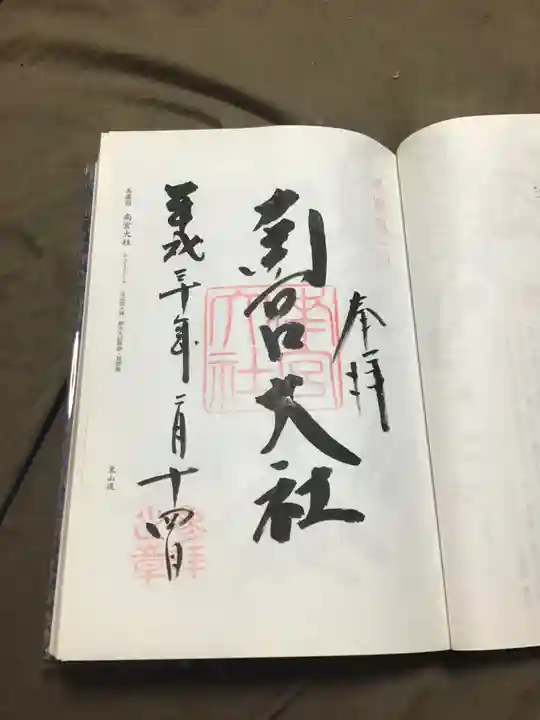 奉拝
南宮大社
平成三十年二月十四日
南宮
大社
参拝
之章
美濃国 南宮大社
東山道